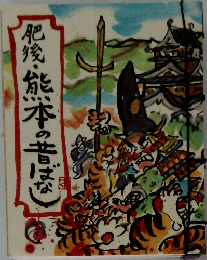 肥後・熊本の昔ばなし